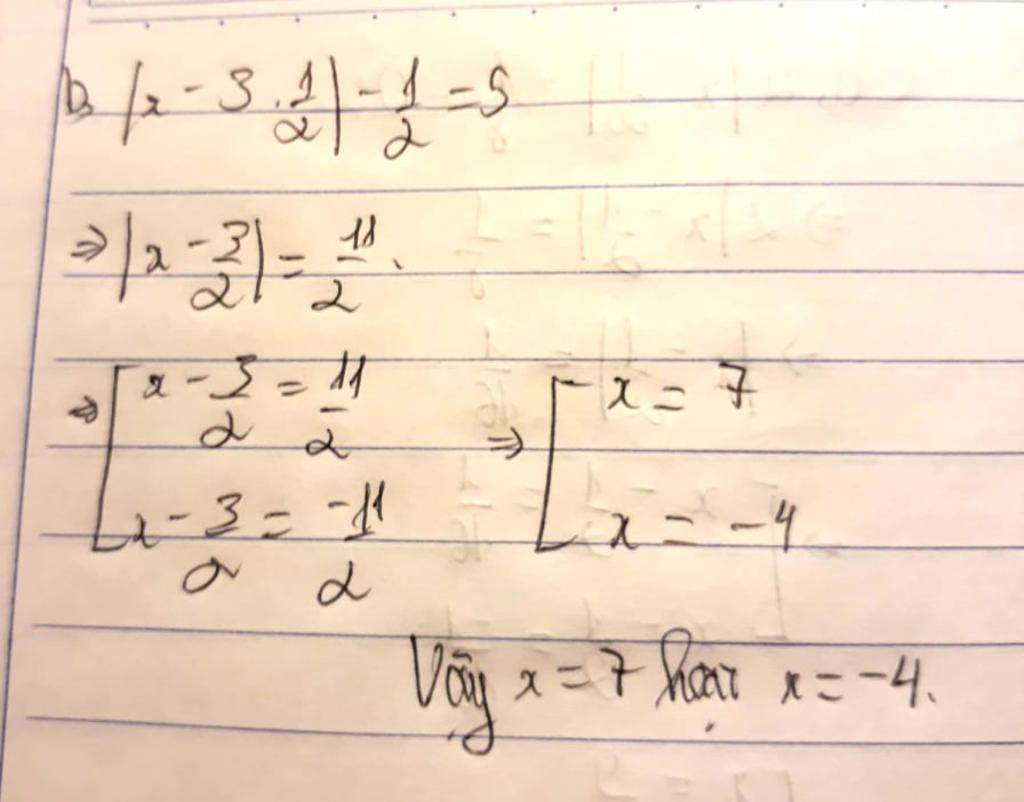 b, |x - 3 . 1/2| - 1/2 = 5
⇒ |x - 3/2| = 11/2 .
⇒ [ x - 3/2 = 11/2 ⇒ [ x = 7
x - 3/2 = -11/2 x = -4
Vậy x = 7 hoặc x = -4.